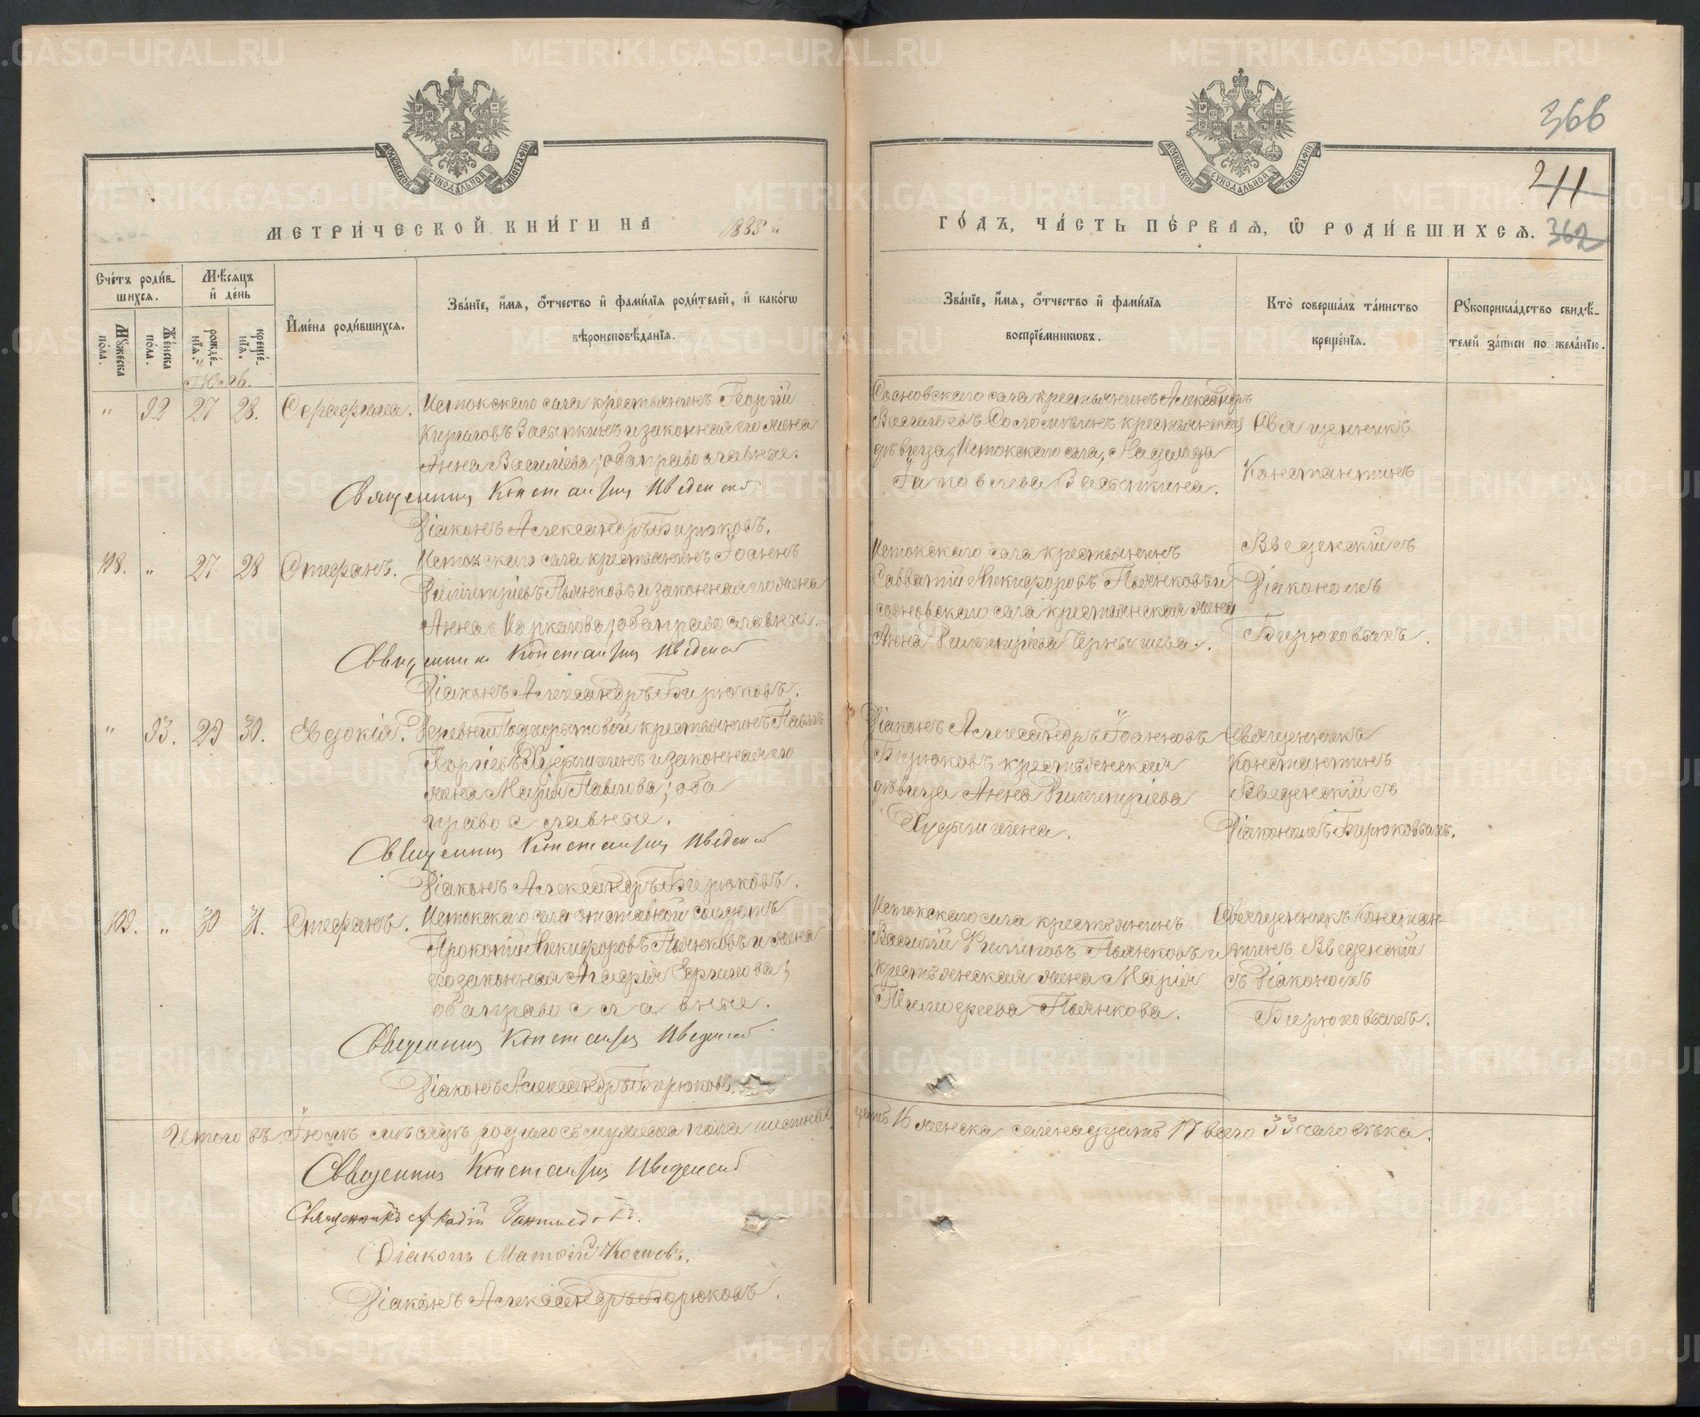 366
211
362
МЕТРИ́ЧЕСКОЙ КНИ́ГИ НА 1888 й
ГО́ДЪ, ЧА́СТЬ ПЕ́РВАЯ, Ѽ РОДИ́ВШИХСЯ.
Сче́тъ роди́вшихся.
Мѣ́сяцъ и де́нь
Мꙋ́жеска по́ла.
Же́нска по́ла.
рожде́нїѧ.
креще́нїѧ.
Имена̀ роди́вшихся.
Зва́нїе, и́мѧ, о́тчество и фами́лїѧ роди́телей, и како́гѡ
вѣроисповѣ́данїѧ.
Зва́нїе, и́мѧ, о́тчество и фами́лїѧ
воспрїе́мникѡвъ.
Кто̀ соверша́лъ та́инство
креще́нїѧ.
Рꙋкоприкла́дство свидѣ́-
телей за́писи по жела́нїю.
Іюль.
" 92 27 28. Серафима.
Истокскаго села крестьянинъ Георгій
Кириловъ Засыпкинъ и законная его жена
Анна Василіева; оба православные.
Священникъ Константинъ Введенскій
Діаконъ Александръ Бирюковъ.
Сосновскаго села крестьянинъ Александръ
Васильевъ Соломеинъ крестьянская
дѣвица, Истокскаго села, Надежда
Яковлева Засыпкина.
Священникъ
Константинъ
Введенскій съ
Діакономъ
Бирюковымъ.
108. " 27 28 Стефанъ.
Истокскаго села крестьянинъ Іоаннъ
Пьянковъ и законная его жена
Анна Маркелова; оба православные.
Священникъ Константинъ Введенскій
Діаконъ Александръ Бирюковъ.
Истокскаго села крестьянинъ
Савватій Никифоровъ Пьянковъ и
сосновскаго села крестьянская жена
Анна
" 93. 29 30. Евдокія.
Деревни крестьянинъ Павелъ
Георгіевъ и законная его
жена Марія Павлова; оба
православные.
Священникъ Константинъ Введенскій
Діаконъ Александръ Бирюковъ.
Діаконъ Александръ Іоанновъ
Бирюковъ крестьянская
дѣвица Анна
Священникъ
Константинъ
Введенскій съ
Діакономъ Бирюковымъ.
109. " 30 31. Стефанъ.
Истокскаго села отставной солдатъ
Прокопій Никифоровъ Пьянковъ и жена
его законная
оба православные.
Священникъ Константинъ Введенскій
Діаконъ Александръ Бирюковъ.
Истокскаго села крестьянинъ
Василій Пьянковъ и
крестьянская жена Марія
Пьянкова.
Священникъ Констан
тинъ Введенскій
съ Діакономъ
Бирюковымъ.
Итого въ Іюлѣ мѣсяцѣ родилось мужеска пола шестнадцать 16 женска семнадцать 17 всего 33 человѣка.
Священникъ Константинъ Введенскій
Священникъ Аркадій
Діаконъ
Діаконъ Александръ Бирюковъ.